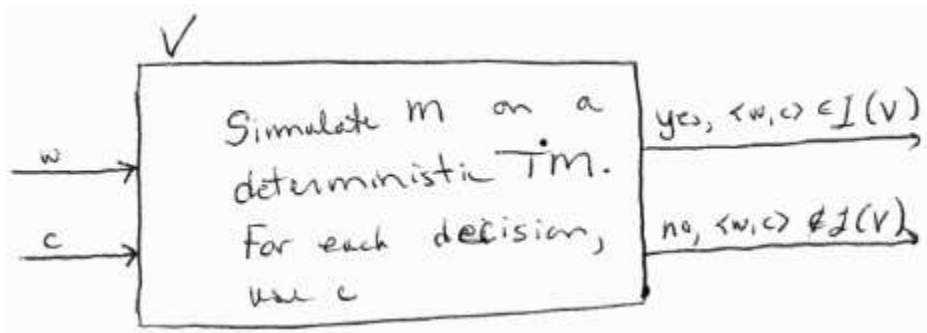 V
Simulate M on a
deterministic TM.
For each decision,
use c
w
c
yes, <w,c> ∈ L(V)
no, <w,c> ∉ L(V)